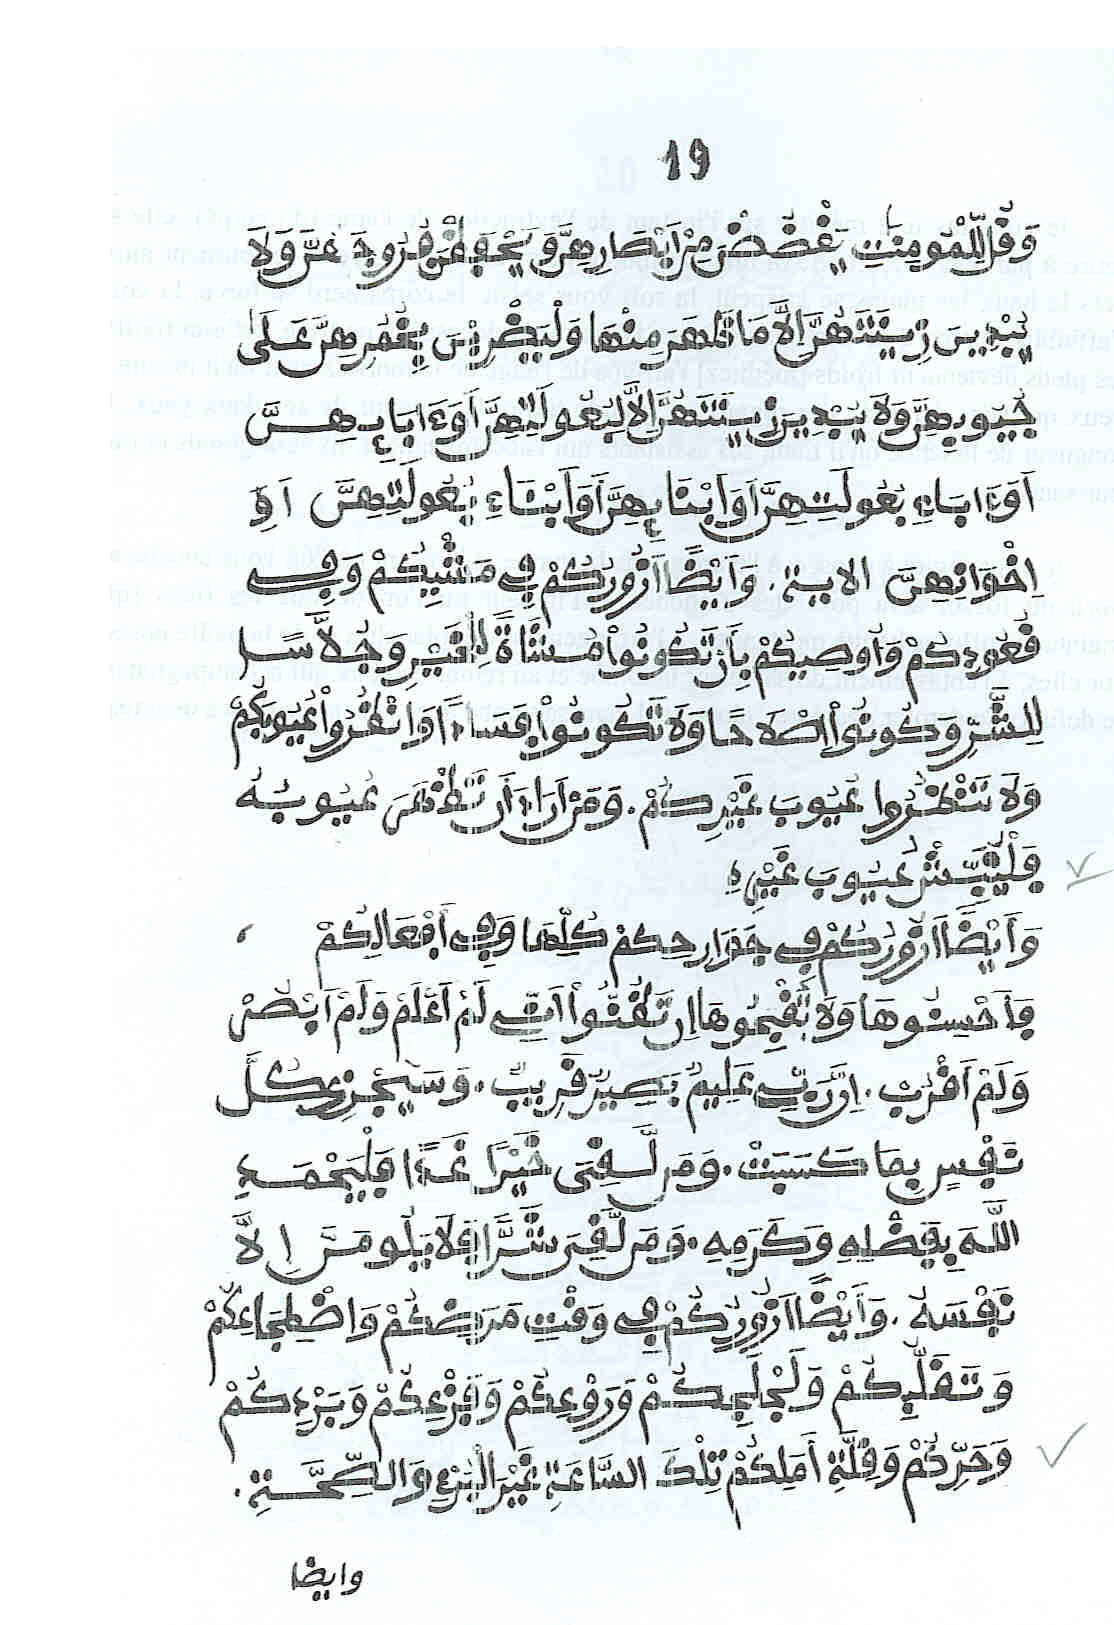 19
وَقُل لِّلْمُومِنَٰتِ يَغْضُضْنَ مِنَ اَبْصَٰرِهِنَّ وَيَحْفَظْنَ فُرُوجَهُنَّ وَلَا
يُبْدِينَ زِينَتَهُنَّ إِلَّا مَا ظَهَرَ مِنْهَا وَلْيَضْرِبْنَ بِخُمُرِهِنَّ عَلَىٰ
جُيُوبِهِنَّ وَلَا يُبْدِينَ زِينَتَهُنَّ إِلَّا لِبُعُولَتِهِنَّ أَوَ ابَآئِهِنَّ
أَوَ ابَآءِ بُعُولَتِهِنَّ أَوَ اَبْنَآئِهِنَّ أَوَ اَبْنَآءِ بُعُولَتِهِنَّ أَوِ
اِخْوَانِهِنَّ الايـة. وَأَيْضًا أَزُورُكُمْ فِي مَشْيِكُمْ وَفِي
قُعُودِكُمْ وَأُوصِيكُمْ بِأَن تَكُونُوا مُشَاةً لِلْخَيْرِ وَجُلَّاسًا
لِلشَّرِّ وَكُونُوا صُلَاحًا وَلَا تَكُونُوا فُسَّادًا وَانْظُرُوا عُيُوبَكُمْ
وَلَا تَنْظُرُوا عُيُوبَ غَيْرِكُمْ. وَمَنْ أَرَادَ أَن تَظْهَرَ عُيُوبُهُ
فَلْيُفَتِّشْ عُيُوبَ غَيْرِهِ
وَأَيْضًا أَزُورُكُمْ فِي جَوَارِحِكُمْ كُلِّهَا وَفِي أَفْعَالِكُمْ
فَأَحْسِنُوهَا وَلَا تُقْبِحُوهَا إِن تَظُنُّوا أَنِّي لَمْ أَعْلَمْ وَلَمْ أَبْصُرْ
وَلَمْ أَقْرُبْ. إِنَّ رَبِّي عَلِيمٌ بَصِيرٌ قَرِيبٌ. وَسَيَجْزِي كُلَّ
نَفْسٍ بِمَا كَسَبَتْ. وَمَن لَّقِيَ خَيْرًا غَدًا فَلْيَحْمَدِ
اللَّهَ بِفَضْلِهِ وَكَرَمِهِ. وَمَن لَّقِيَ شَرًّا فَلَا يَلُومَنَّ إِلَّا
نَفْسَهُ. وَأَيْضًا أَزُورُكُمْ فِي وَقْتِ مَرَضِكُمْ وَاضْطِجَاعِكُمْ
وَتَقَلُّبِكُمْ وَلَجْلَجِكُمْ وَرَوْعِكُمْ وَفَزْعِكُمْ وَبَرْدِكُمْ
وَحَرِّكُمْ وَقِلَّةِ أَمَلِكُمْ تِلْكَ السَّاعَةِ غَيْرَ الْبُرْءِ وَالصِّحَّـةِ.
وايضا